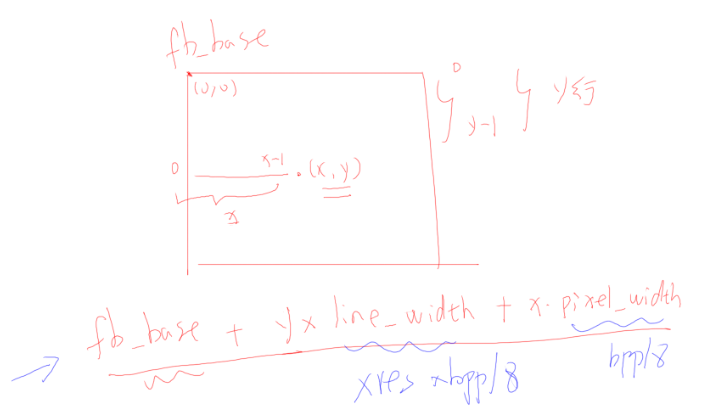 fb_base
(0,0)
0
y-1
y行
0
x-1
.(x,y)
x
fb_base + y x line_width + x. pixel_width
xres x bpp/8
bpp/8